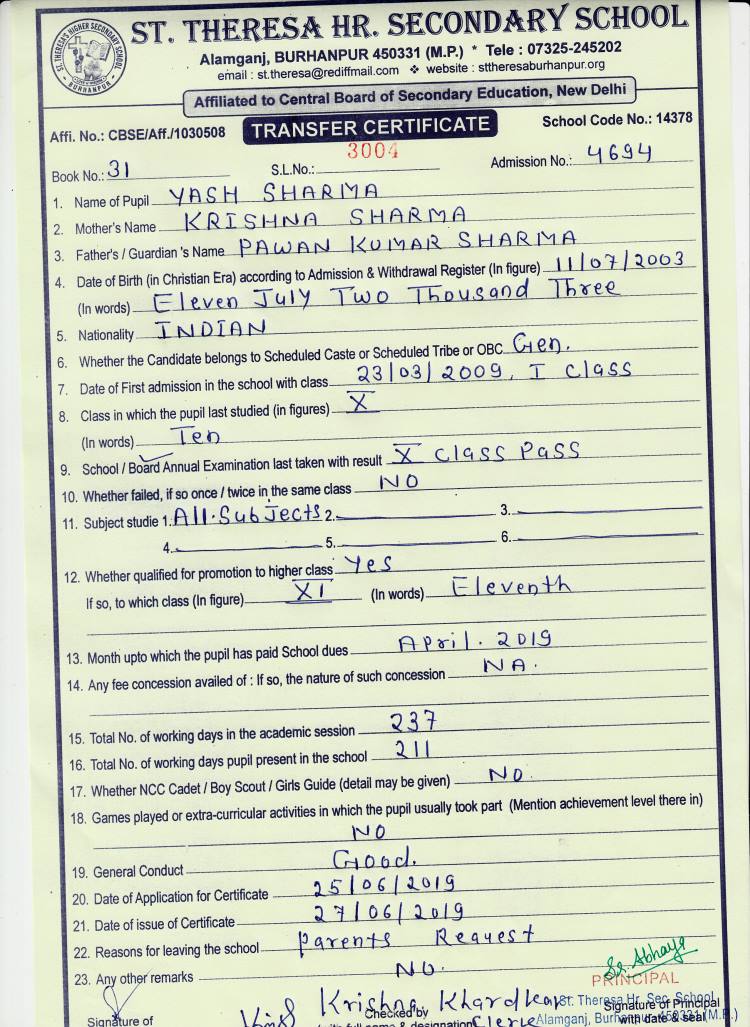 ST. THERESA HR. SECONDARY SCHOOL
Alamganj, BURHANPUR 450331 (M.P.) * Tele : 07325-245202
email : st.theresa@rediffmail.com ❖ website : sttheresaburhanpur.org
Affiliated to Central Board of Secondary Education, New Delhi
Affi. No.: CBSE/Aff./1030508 TRANSFER CERTIFICATE School Code No.: 14378
Book No.: 31 S.L.No.: 3004 Admission No.: 4694
1. Name of Pupil YASH SHARMA
2. Mother's Name KRISHNA SHARMA
3. Father's / Guardian 's Name PAWAN KUMAR SHARMA
4. Date of Birth (in Christian Era) according to Admission & Withdrawal Register (In figure) 11/07/2003
(In words) Eleven July Two Thousand Three
5. Nationality INDIAN
6. Whether the Candidate belongs to Scheduled Caste or Scheduled Tribe or OBC Gen.
7. Date of First admission in the school with class 23/03/2009, I Class
8. Class in which the pupil last studied (in figures) X
(In words) Ten
9. School / Board Annual Examination last taken with result X Class Pass
10. Whether failed, if so once / twice in the same class NO
11. Subject studie 1. All Subjects 2. 3.
4. 5. 6.
12. Whether qualified for promotion to higher class Yes
If so, to which class (In figure) XI (In words) Eleventh
13. Month upto which the pupil has paid School dues April. 2019
14. Any fee concession availed of : If so, the nature of such concession NA.
15. Total No. of working days in the academic session 237
16. Total No. of working days pupil present in the school 211
17. Whether NCC Cadet / Boy Scout / Girls Guide (detail may be given) NO.
18. Games played or extra-curricular activities in which the pupil usually took part (Mention achievement level there in)
NO
19. General Conduct Good.
20. Date of Application for Certificate 25/06/2019
21. Date of issue of Certificate 27/06/2019
22. Reasons for leaving the school Parents Request
23. Any other remarks NO.
Sr. Abhaya
PRINCIPAL
Krishna Khardkar St. Theresa Hr. Sec. School
Signature of Checked by Signature of Principal
Clerk Alamganj, Burhanpur 450331 (M.P.)
with date & seal